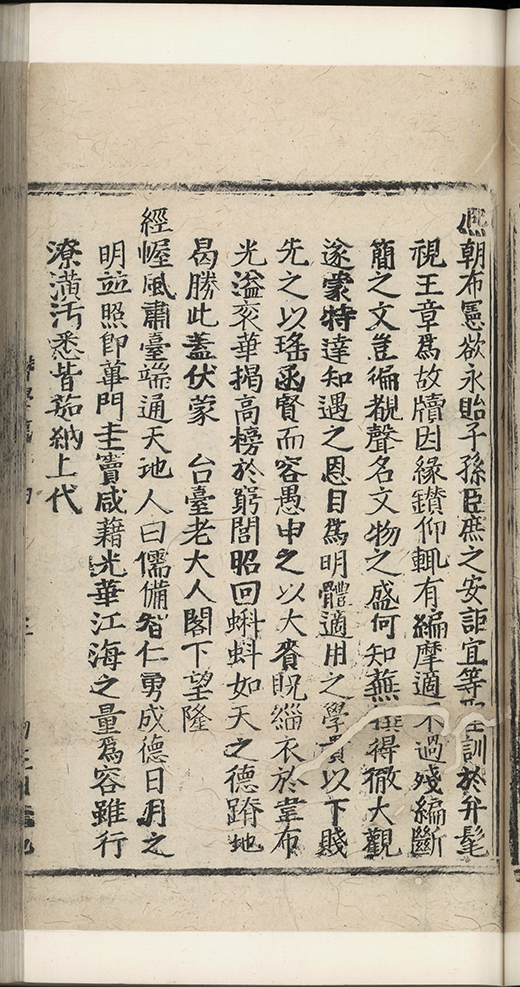 熈朝布憲欲永貽子孫臣庶之安詎宜等訓於弁髦
視王章爲故牘因緣鑚仰輒有編摩適不過殘編斷
簡之文豈徧覩聲名文物之盛何知蕪得徹大觀
遂蒙特達知遇之恩目爲明體適用之學賁以下賤
先之以瑤函賢而容愚申之以大賚貺緇衣於韋布
光溢衮華揭高榜於窮閭昭回蝌蚪如天之德蹐地
曷勝此蓋伏蒙　台臺老大人閣下望隆
經幄風肅臺端通天地人曰儒備智仁勇成德日月之
明並照即蓽門圭竇咸藉光華江海之量爲容雖行
潦潢汚悉皆茹納上代